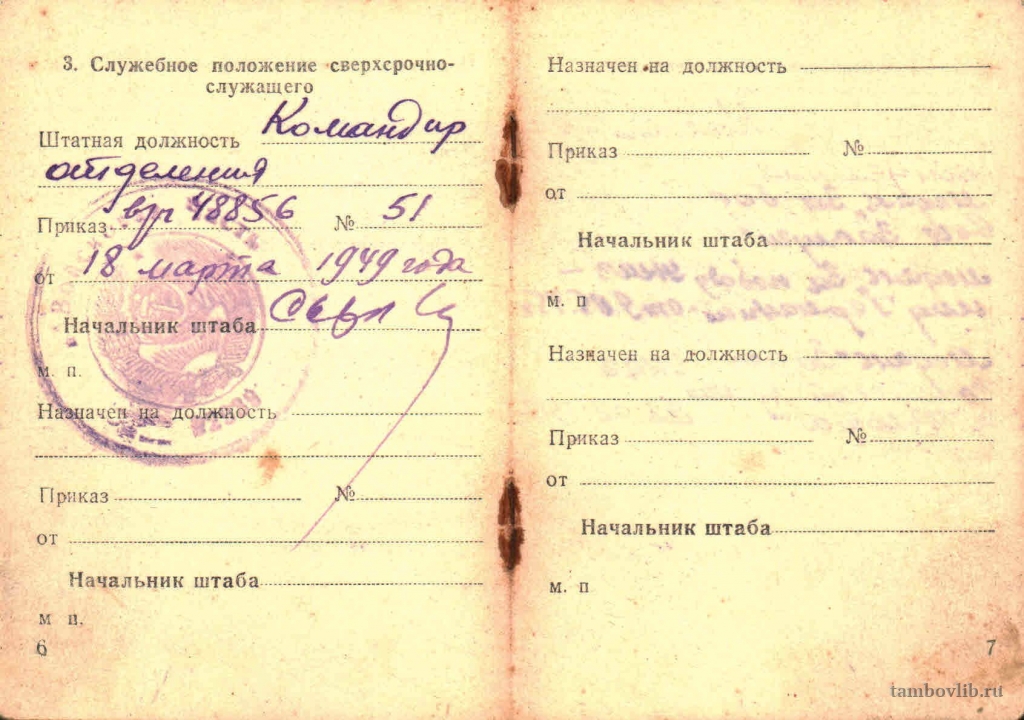 3. Служебное положение сверхсрочно-
служащего
Штатная должность Командир
отделения
Приказ в/ч 48856 № 51
от 18 марта 1949 года
Начальник штаба
м. п.
Назначен на должность
Приказ №
от
Начальник штаба
м п.
6
Назначен на должность
Приказ №
от
Начальник штаба
м. п
Назначен на должность
Приказ №
от
Начальник штаба
м. п
7
tambovlib.ru